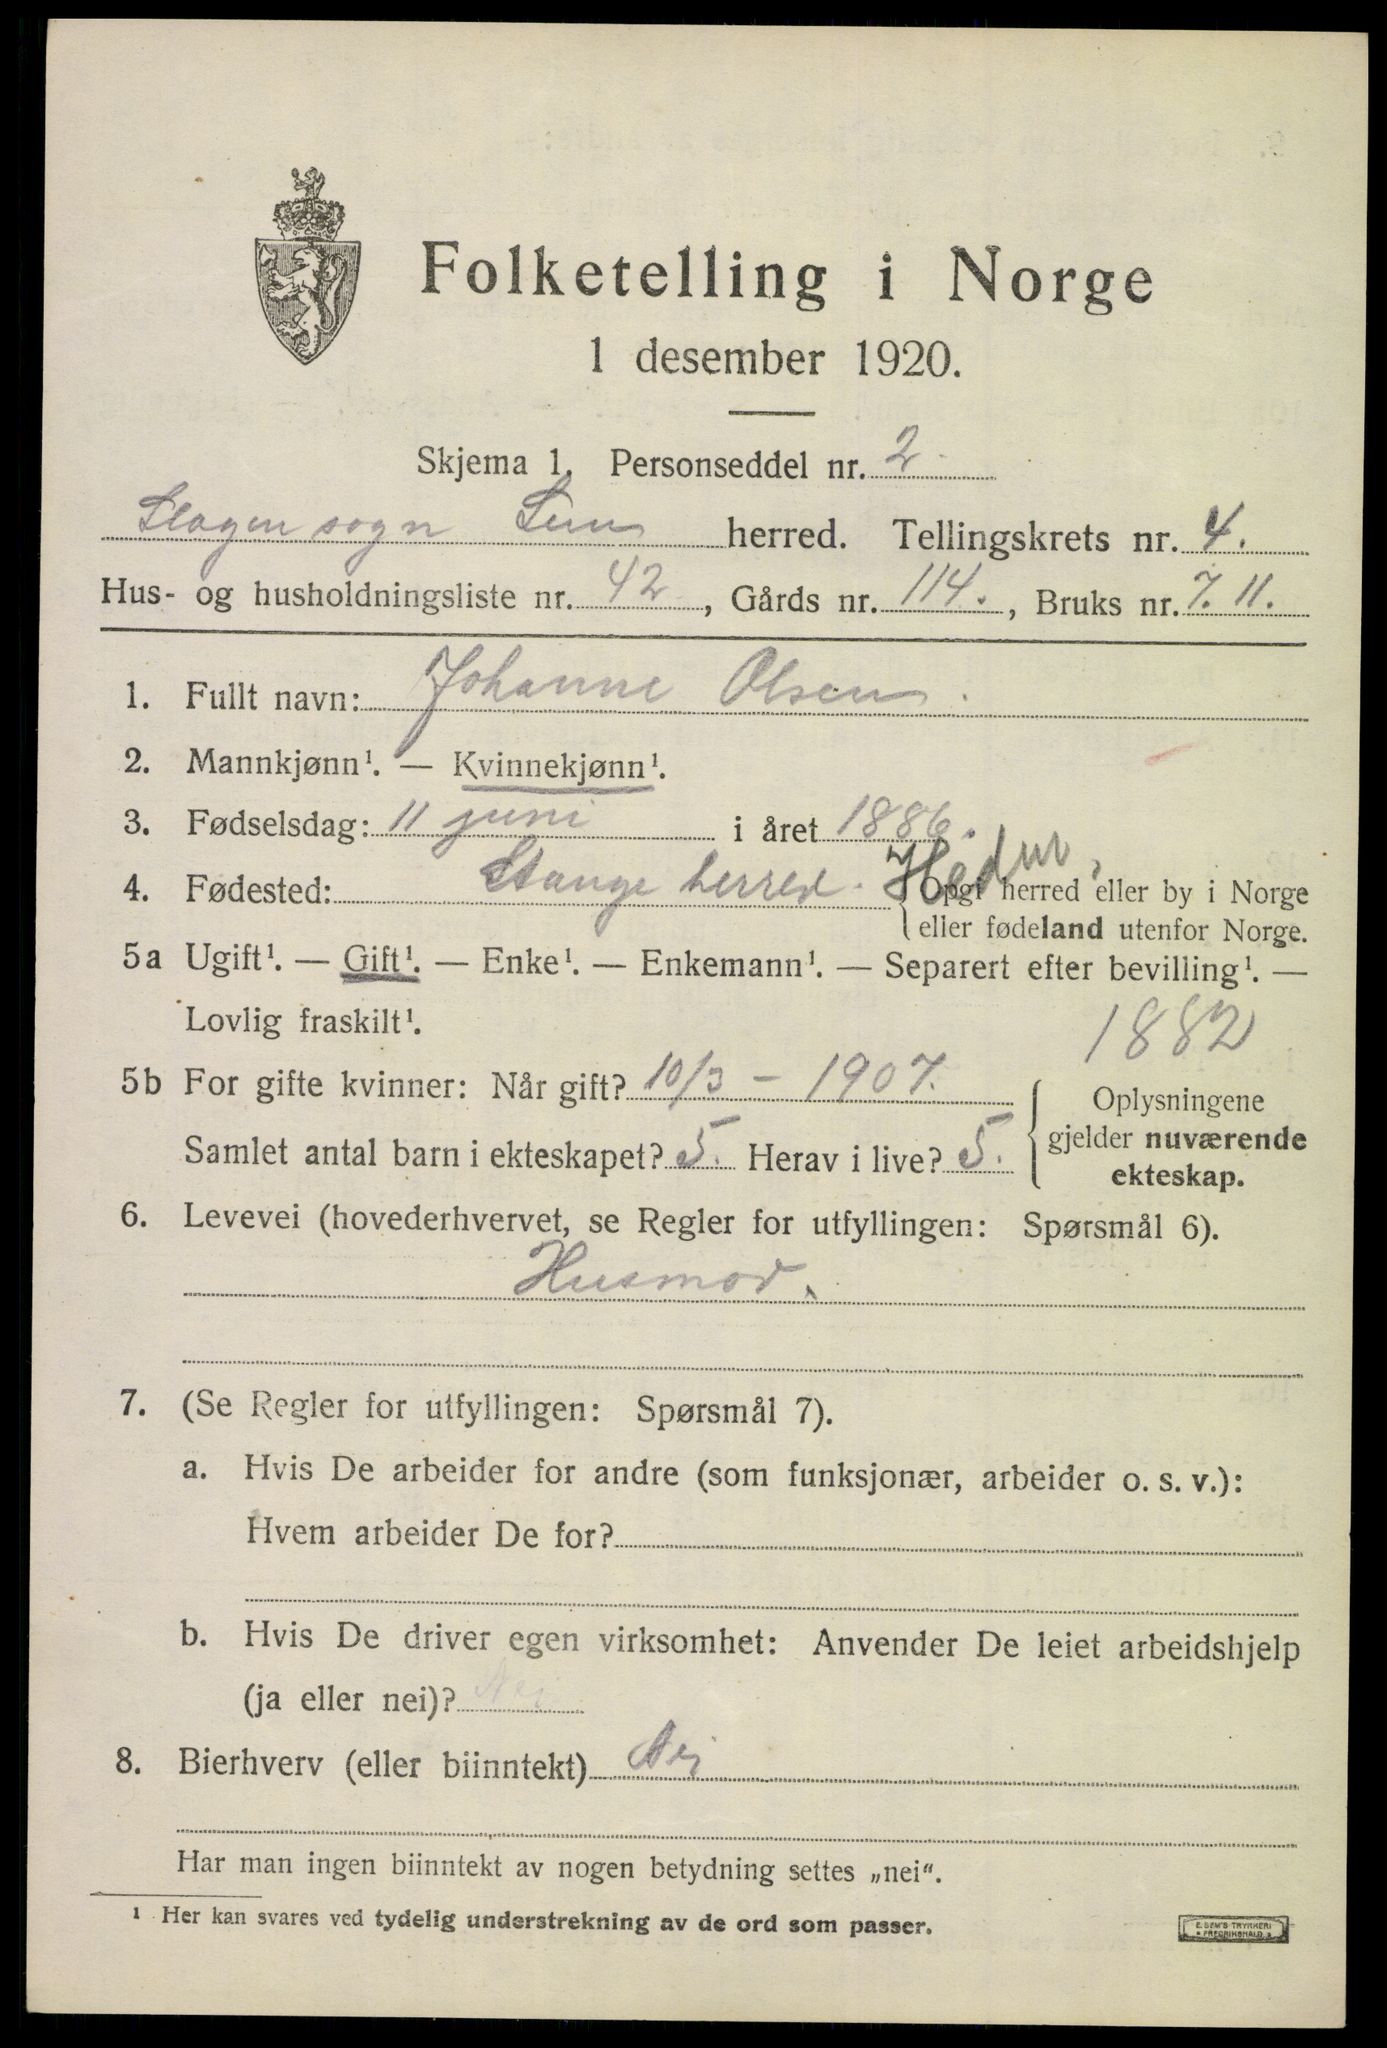 Folketelling i Norge
1 desember 1920.
Skjema 1. Personseddel nr. 2
Slagen sogn Sem herred. Tellingskrets nr. 4.
Hus- og husholdningsliste nr. 42, Gårds nr. 114., Bruks nr. 7.11.
1. Fullt navn: Johanne Olsen.
2. Mannkjønn¹. — Kvinnekjønn¹.
3. Fødselsdag: 11 juni i året 1886.
4. Fødested: Stange herred. Hedm. {Opgi herred eller by i Norge
eller fødeland utenfor Norge.
5a Ugift¹. — Gift¹. — Enke¹. — Enkemann¹. — Separert efter bevilling¹. —
Lovlig fraskilt¹.
1882
5b For gifte kvinner: Når gift? 10/3 – 1907.
Samlet antal barn i ekteskapet? 5. Herav i live? 5.
{Oplysningene
gjelder nuværende
ekteskap.
6. Levevei (hovederhvervet, se Regler for utfyllingen: Spørsmål 6).
Husmor.
7. (Se Regler for utfyllingen: Spørsmål 7).
a. Hvis De arbeider for andre (som funksjonær, arbeider o. s. v.):
Hvem arbeider De for?
b. Hvis De driver egen virksomhet: Anvender De leiet arbeidshjelp
(ja eller nei)? Nei
8. Bierhverv (eller biinntekt) Nei
Har man ingen biinntekt av nogen betydning settes „nei“.
¹ Her kan svares ved tydelig understrekning av de ord som passer.
E. SEM'S TRYKKERI
FREDRIKSHALD